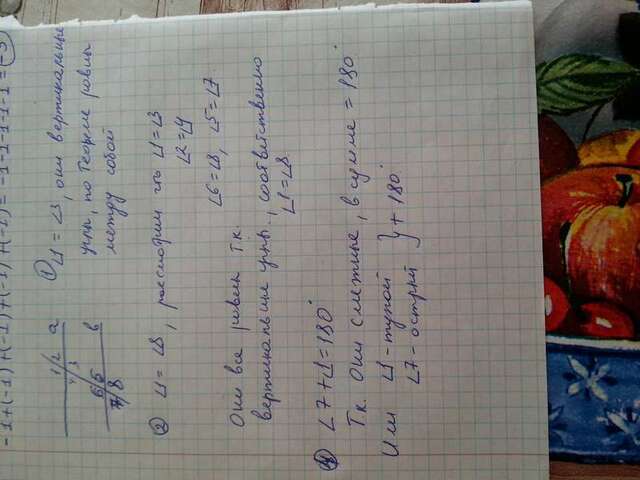 -1+(-1)+(-1)+(-1)+(-1) = -1-1-1-1-1 = -5
① ∠1 = ∠3, они вертикальные
углы, по теореме равны
между собой
1/2 a
4/3
6/5
7/8 b
② ∠1 = ∠8, рассмотрим что ∠1=∠3
∠2=∠4
∠6=∠8, ∠5=∠7
Они все равны т.к.
вертикальные углы, соответственно
∠1=∠8
∠7+∠1=180°
Т.к. Они смежные, в сумме = 180°
Или ∠1 - тупой
∠7 - острый } + 180°